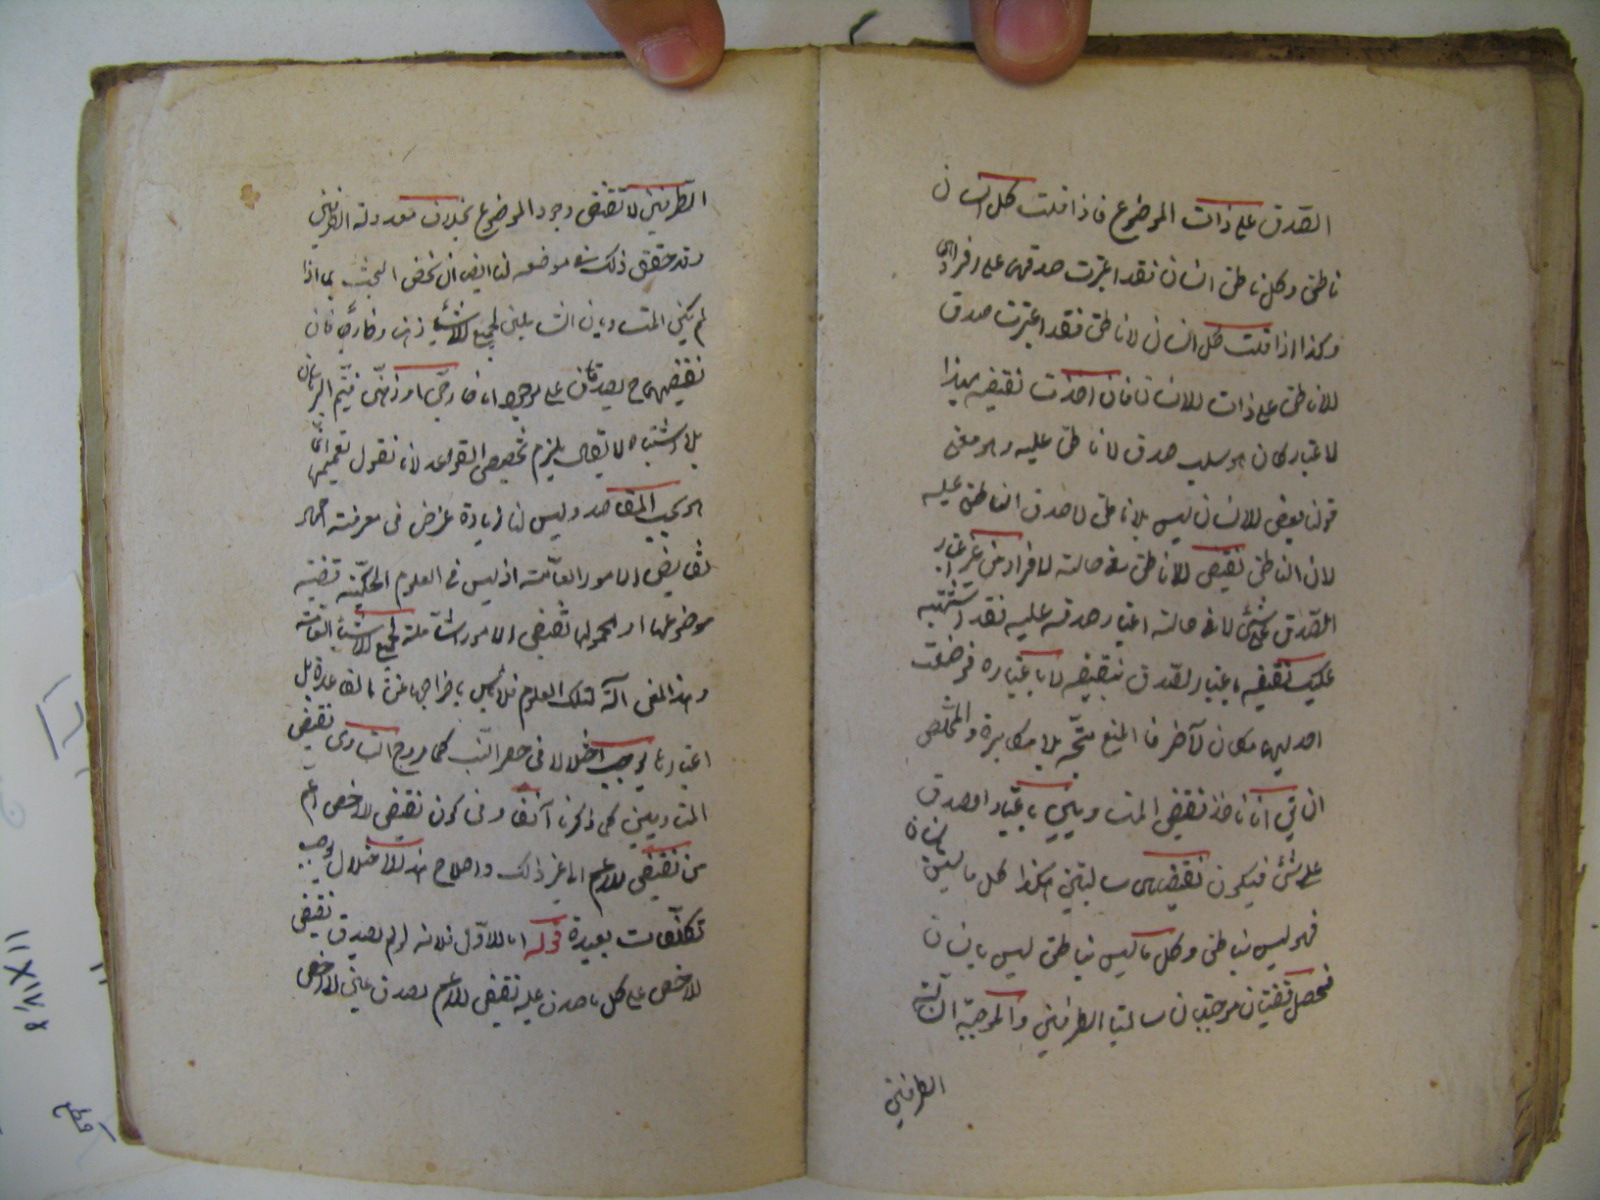 الصدق على ذات الموضوع فاذا قلت كل انسان
ناطق وكل ناطق انسان فقد اعتبرت صدقهما على افرادهما
وكذا اذا قلت كل انسان لا ناطق فقد اعتبرت صدق
اللاناطق على ذات الانسان فان اخذت نقيضه بهذا
الاعتبار كان هو سلب صدق لاناطق عليه وهو معنى
قولنا بعض الانسان ليس بلا ناطق لا صدق الناطق عليه
لان الناطق نقيض اللاناطق في حالته الافراد من غير اعتبار
الصدق على شئ لا في حالته اعتبار صدقه عليه فقد اشتبه
عليك نقيضه باعتبار الصدق بنقيضه لا باعتباره فوضعت
احدهما مكان الآخر فالمنع متجه بلا مكابرة والمخلص
ان يقال انا ناخذ نقيضي المتساويين باعتبار الصدق
على شئ فيكون نقيضاهما سالبتين هكذا كل ما ليس بانسان
فهو ليس بناطق وكل ما ليس بناطق ليس بانسان
فحصل قضيتان موجبتان سالبتا الطرفين والموجبة السالبة
الطرفين
الطرفين لا تقتضي وجود الموضوع بخلاف معدولة الطرفين
وقد حقق ذلك في موضعه لنا ايضا ان نخص البحث بما اذا
لم يكن المتساويان الشاملين لجميع الاشياء ذهنا وخارجا فان
نقيضهما ح يصدقان على موجود اما خارجي او ذهني فيتم البرهان
بلا اشتباه لا يقال يلزم تخصيص القواعد لانا نقول تعميمها انما
هو بحسب المقاصد وليس لنا زيادة غرض في معرفة احوال
نقايض الامور العامة اذ ليس في العلوم الحكمية قضية
موضوعها او محمولها نقيض الامور الشاملة لجميع الاشياء العامة
وهذا الفن آلة لتلك العلوم فلا بأس باخراجها عن القاعدة بل
اعتبارها يوجب اختلالا في حصر النسب كما مر وفي التساوي نقيضي
المتساويين كما ذكرنا آنفا وفي كون نقيض الاخص اعم
من نقيض الاعم الى غير ذلك واصلاح هذا الاختلال يوجب
تكلفات بعيدة قوله اما الاول فلانه لو لم يصدق نقيض
الاخص على كل ما صدق عليه نقيض الاعم لصدق عين الاخص